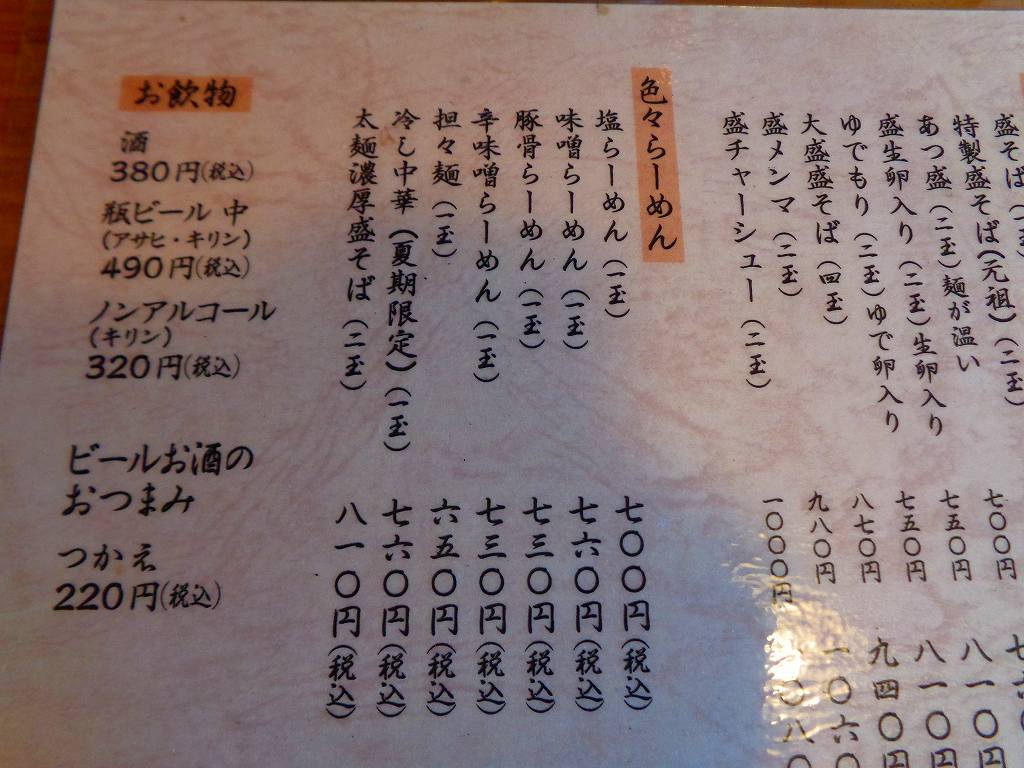 盛そば
特製盛そば(元祖)(二玉)
あつ盛(二玉)麺が温い
盛生卵入り(二玉)生卵入り
ゆでもり(二玉)ゆで卵入り
大盛盛そば(四玉)
盛メンマ(二玉)
盛チャーシュー(二玉)
七〇〇円
七五〇円
七五〇円
八七〇円
九八〇円
一〇〇〇円
八一〇円
八一〇円
九四〇円
一〇六〇
色々らーめん
塩らーめん(一玉) 七〇〇円(税込)
味噌らーめん(一玉) 七六〇円(税込)
豚骨らーめん(一玉) 七三〇円(税込)
辛味噌らーめん(一玉) 七三〇円(税込)
担々麺(一玉) 六五〇円(税込)
冷し中華(夏期限定)(一玉) 七六〇円(税込)
太麺濃厚盛そば(二玉) 八一〇円(税込)
お飲物
酒
380円(税込)
瓶ビール 中
(アサヒ・キリン)
490円(税込)
ノンアルコール
(キリン)
320円(税込)
ビールお酒の
おつまみ
つかえ
220円(税込)